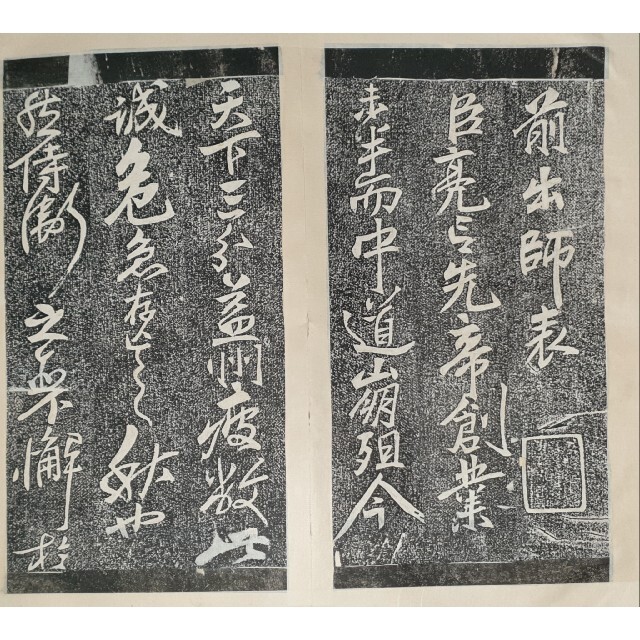 前出師表
臣亮言先帝創業
未半而中道崩殂今
天下三分益州疲敝此
誠危急存亡之秋也
然侍衛之臣不懈於